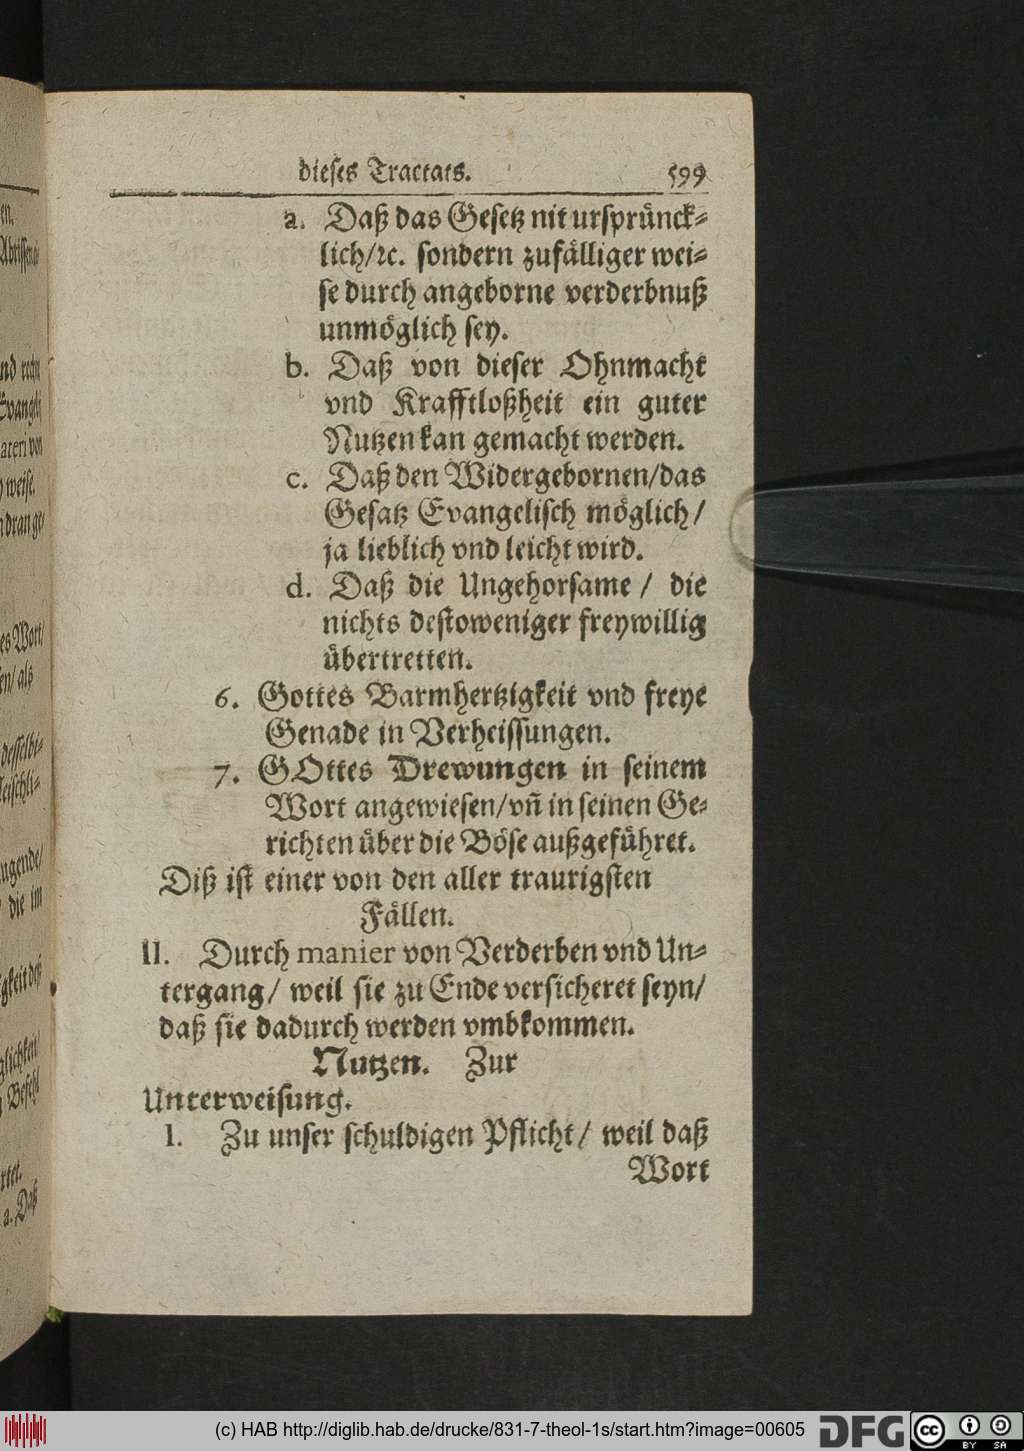 dieses Tractats. 599
a. Daß das Gesetz nit ursprünck⸗
lich/ꝛc. sondern zufälliger wei⸗
se durch angeborne verderbnuß
unmöglich sey.
b. Daß von dieser Ohnmacht
vnd Krafftloßheit ein guter
Nutzen kan gemacht werden.
c. Daß den Widergebornen/das
Gesatz Evangelisch möglich/
ja lieblich vnd leicht wird.
d. Daß die Ungehorsame / die
nichts destoweniger freywillig
übertretten.
6. Gottes Barmhertzigkeit vnd freye
Genade in Verheissungen.
7. GOttes Drewungen in seinem
Wort angewiesen/vñ in seinen Ge⸗
richten über die Böse außgeführet.
Diß ist einer von den aller traurigsten
Fällen.
II. Durch manier von Verderben vnd Un⸗
tergang/ weil sie zu Ende versicheret seyn/
daß sie dadurch werden vmbkommen.
Nutzen. Zur
Unterweisung.
I. Zu unser schuldigen Pflicht/ weil daß
Wort
(c) HAB http://diglib.hab.de/drucke/831-7-theol-1s/start.htm?image=00605
DFG
cc BY SA